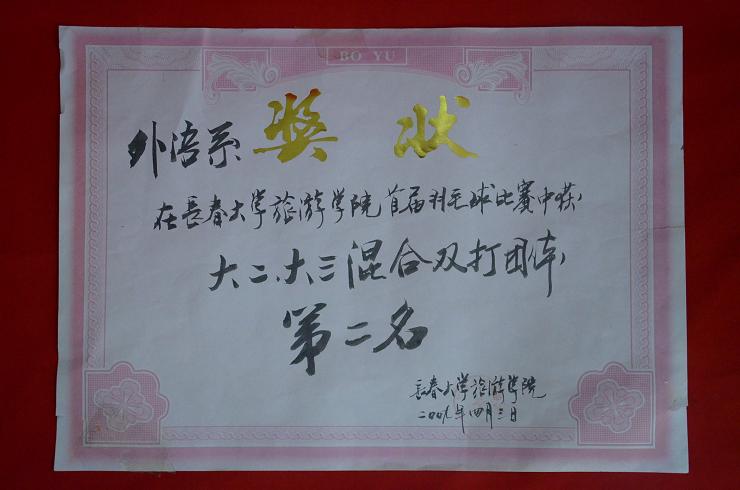 BO YU
外语系 奖状
在長春大学旅游学院首届羽毛球比赛中获,
大二、大三混合双打团体,
第二名
長春大学旅游学院
二00九年四月三日